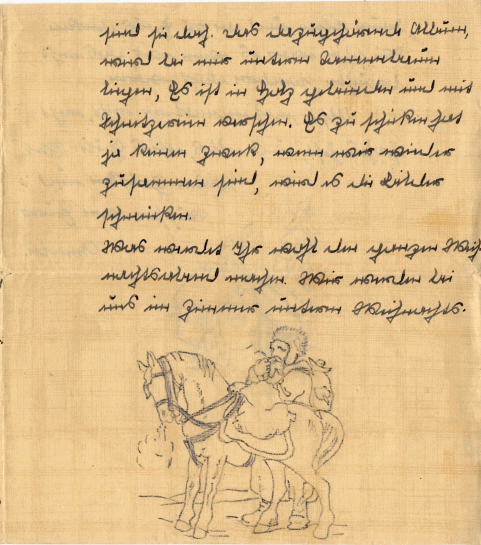 sind sie doch. Das dazugehörende Album,
wird bei mir unterm Tannenbaum
liegen, Es ist in Holz gebunden und mit
Schnitzereien versehen. Es zu schicken hat
ja keinen Zweck, wenn wir wieder
zusammen sind, wird es die Bilder
schmücken.
Was werdet Ihr wohl den ganzen Weih
nachtsabend machen. Wir werden bei
uns im Zimmer unterm Weihnachts-